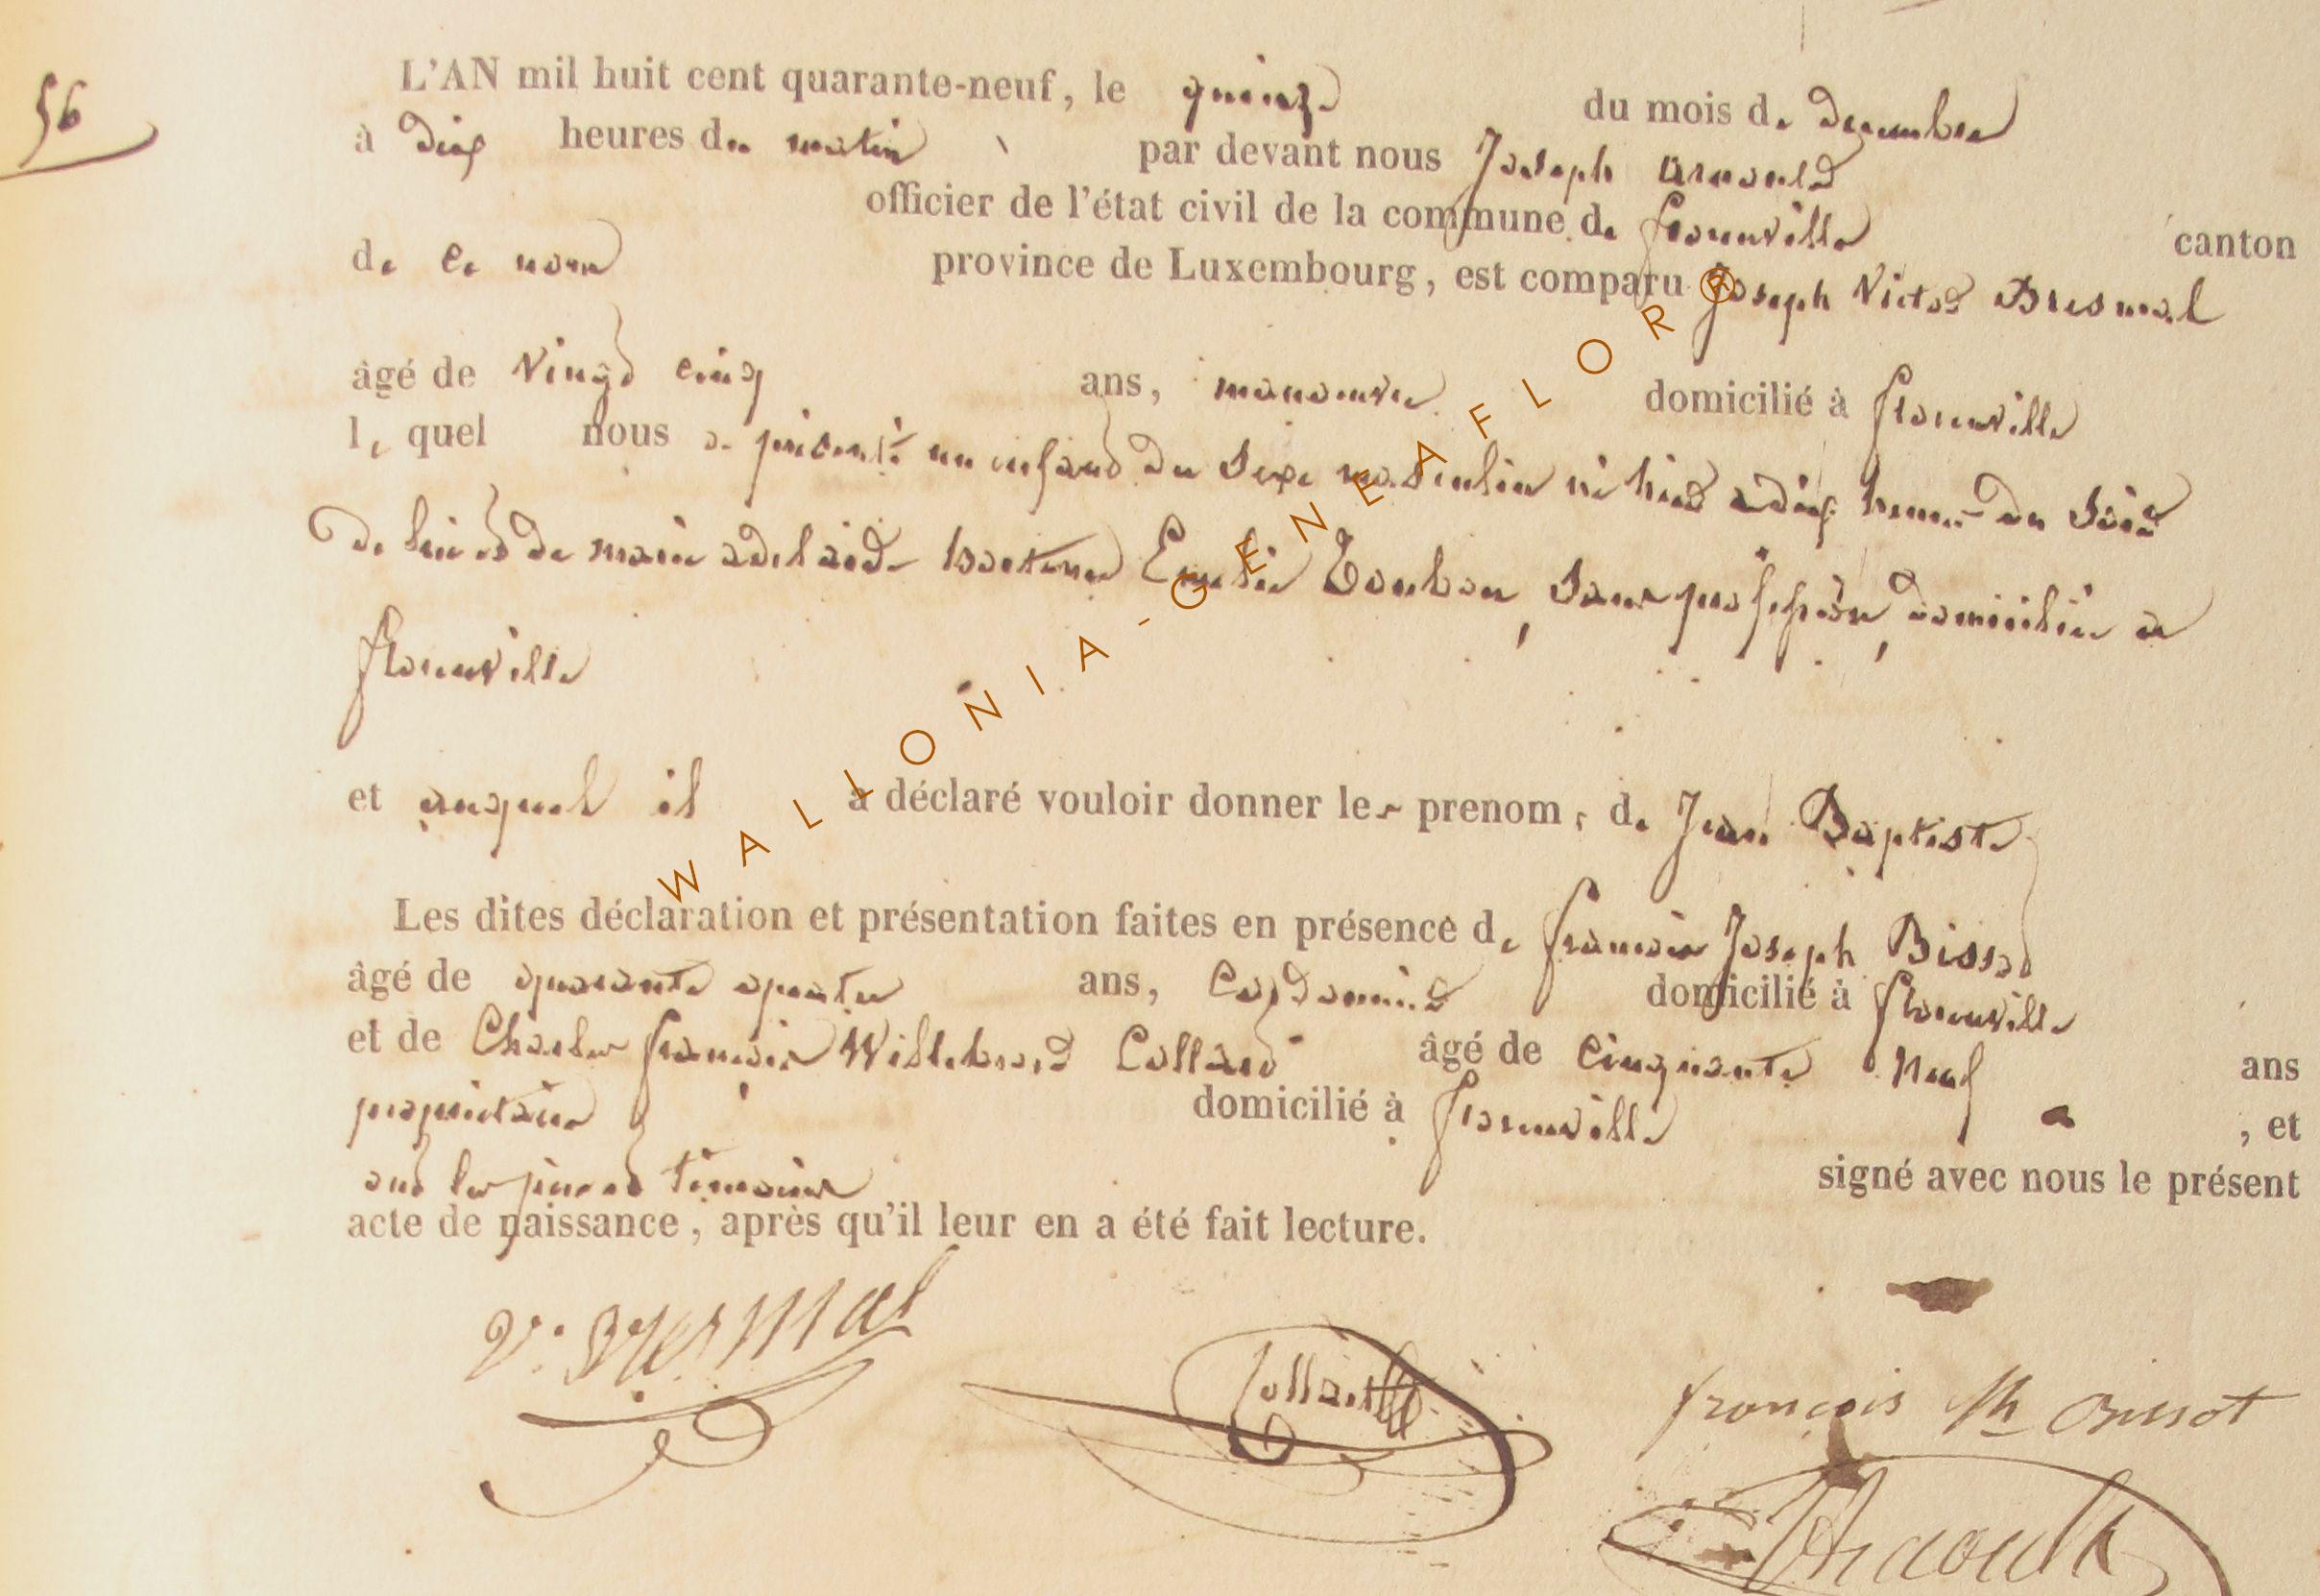 56
L'AN mil huit cent quarante-neuf, le quinze du mois de decembre
à dix heures du matin par devant nous Joseph arnould
officier de l'état civil de la commune de florenville canton
de ce nom province de Luxembourg, est comparu Joseph Victor Bresmal
âgé de vingt cinq ans, manoeuvre domicilié à florenville
le quel nous a présenté un enfant du sexe masculin né hier a dix heures du soir
de lui et de marie adelaide hortense Emelie Toubon, sans profession, domiciliée a
florenville
et auquel il a déclaré vouloir donner les prenoms de Jean Baptiste
Les dites déclaration et présentation faites en présence de francois Joseph Bissot
âgé de quarante quatre ans, Cordonnier domicilié à florenville
et de Charles françois Willebrord Collard âgé de cinquante neuf ans
proprietaire domicilié à florenville , et
ont les pere et témoins signé avec nous le présent
acte de naissance, après qu'il leur en a été fait lecture.
V. Bresmal
Collard
françois Jh Bissot
Arnould
WALLONIA-GENEAFLOR®